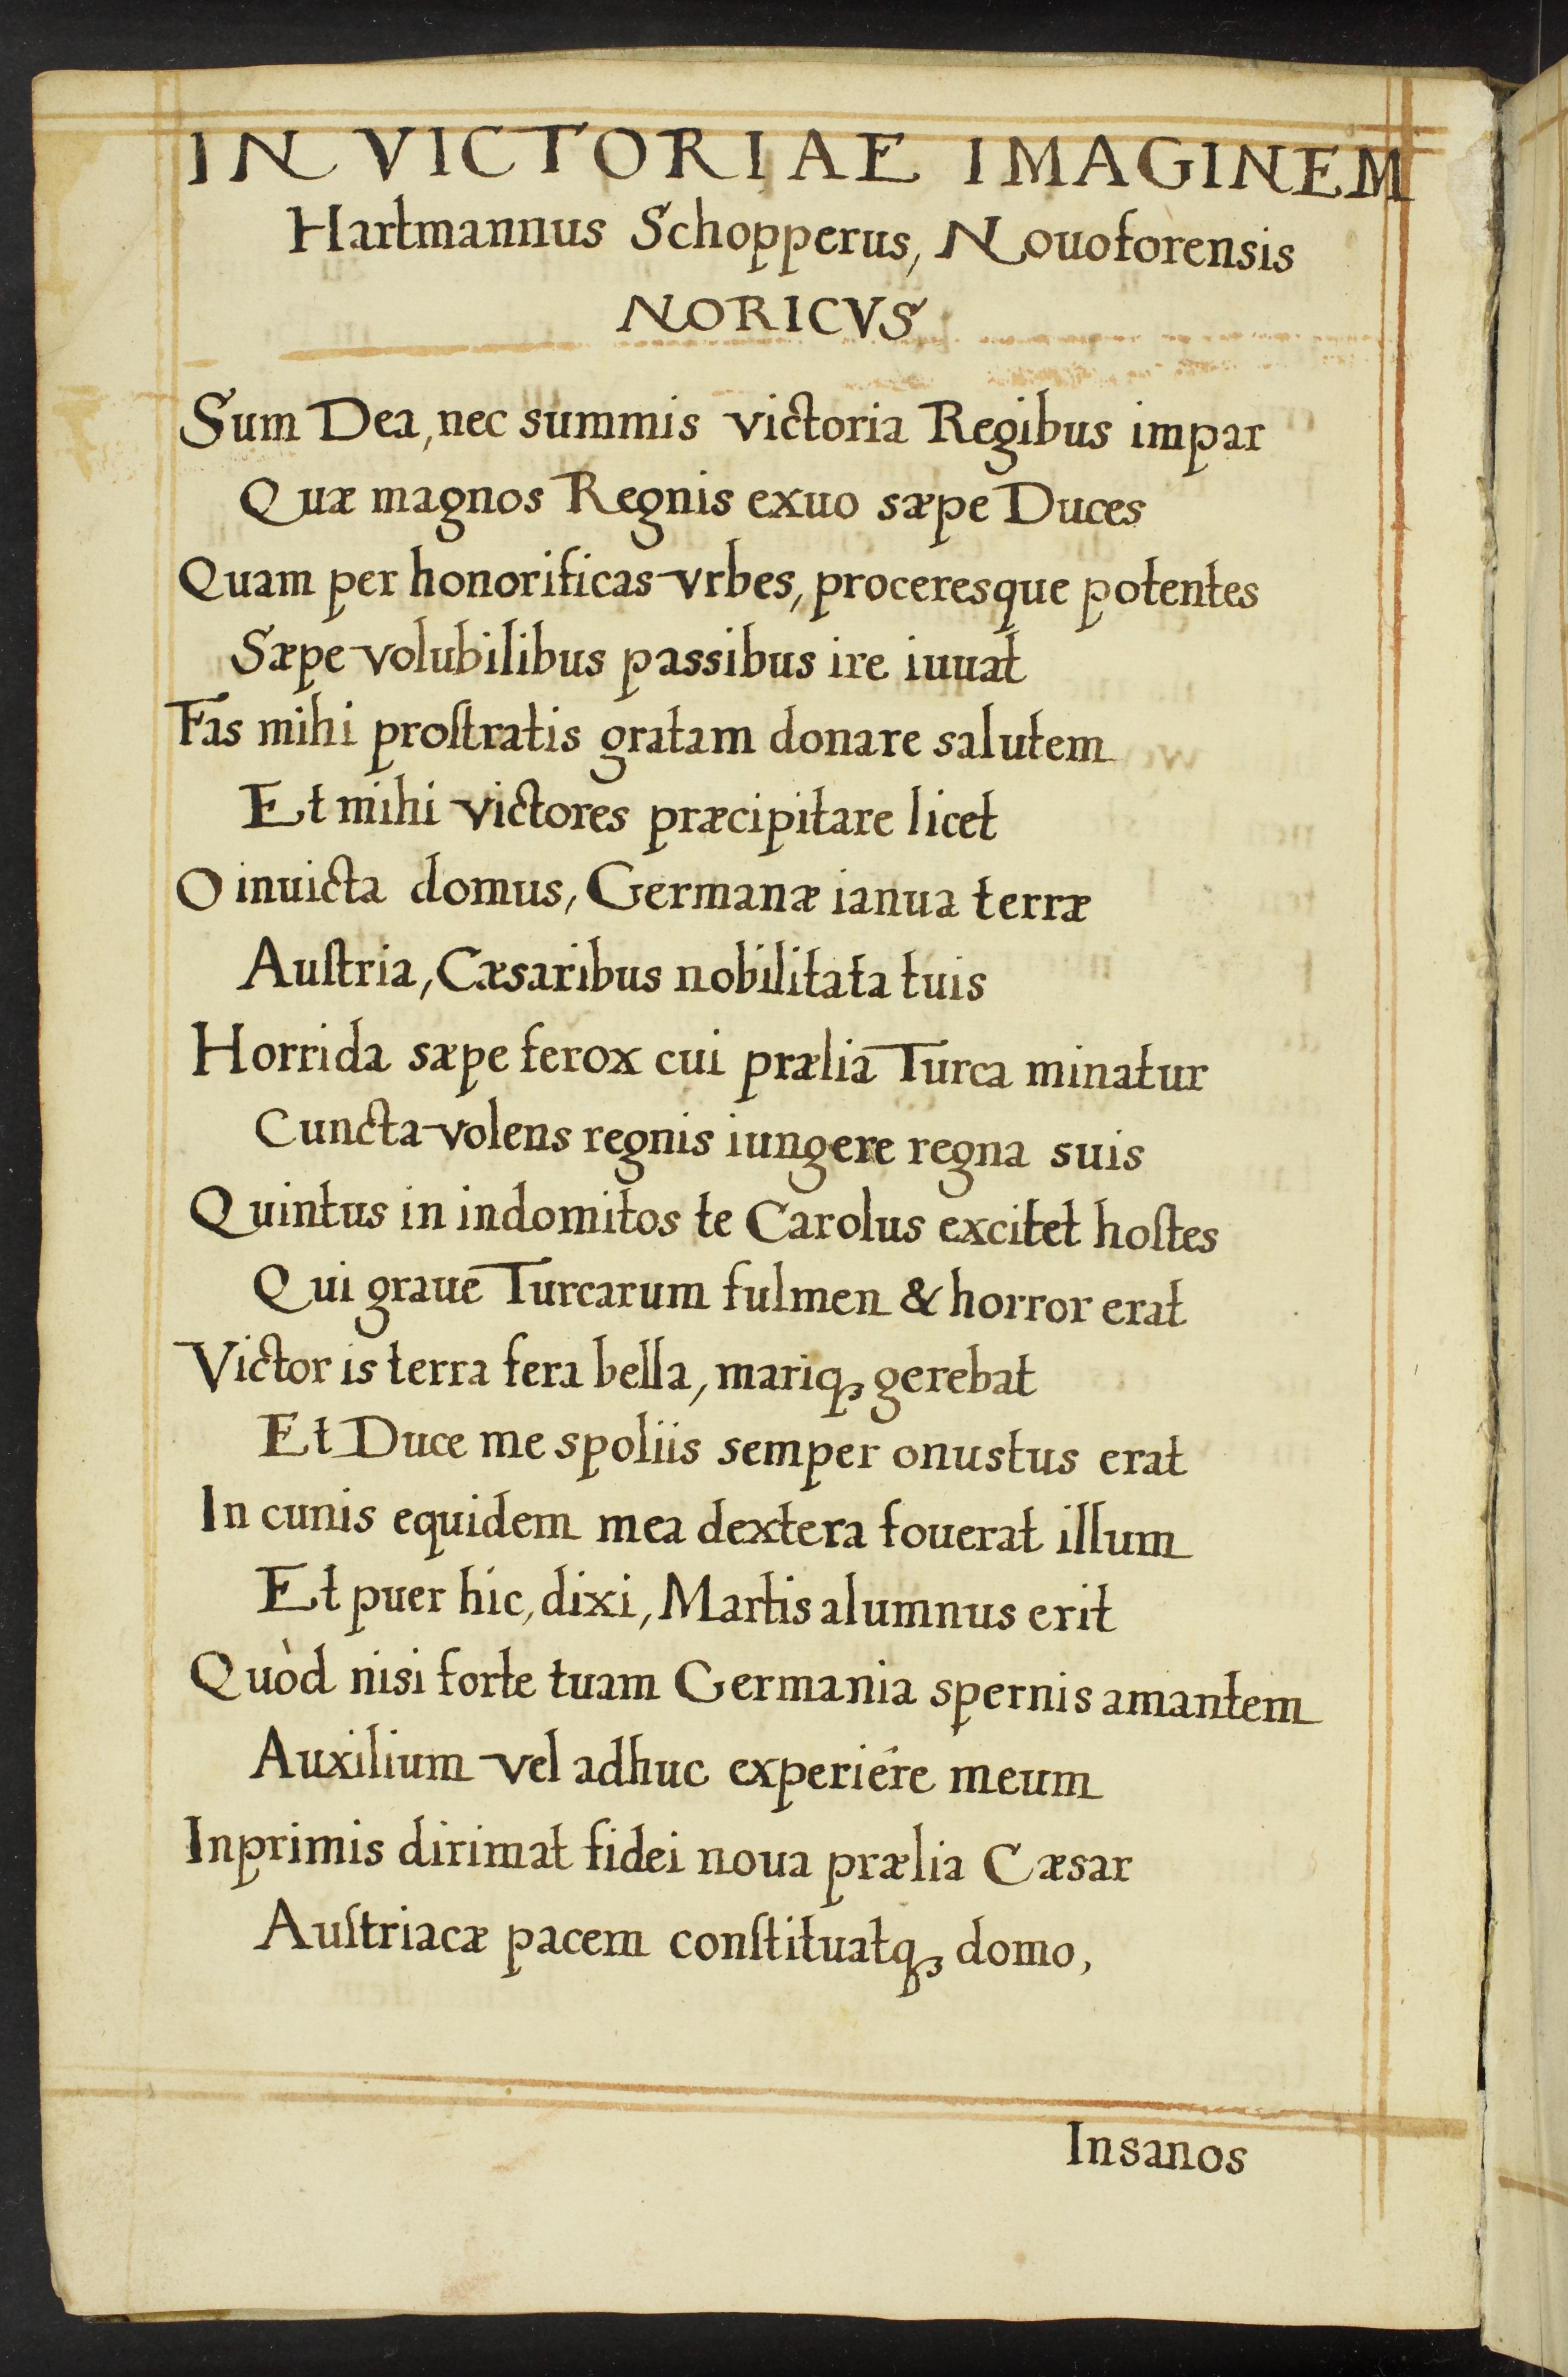 IN VICTORIAE IMAGINEM
Hartmannus Schopperus, Nouoforensis
NORICVS
Sum Dea, nec summis victoria Regibus impar
Quæ magnos Regnis exuo sæpe Duces
Quam per honorificas vrbes, proceresque potentes
Sæpe volubilibus passibus ire iuuat
Fas mihi proſtratis gratam donare salutem
Et mihi victores præcipitare licet
O inuicta domus, Germanæ ianua terræ
Auſtria, Cæsaribus nobilitata tuis
Horrida sæpe ferox cui prælia Turca minatur
Cuncta volens regnis iungere regna suis
Quintus in indomitos te Carolus excitet hoſtes
Qui graue Turcarum fulmen & horror erat
Victor is terra fera bella, mariqꝫ gerebat
Et Duce me spoliis semper onustus erat
In cunis equidem mea dextera fouerat illum
Et puer hic, dixi, Martis alumnus erit
Quòd nisi forte tuam Germania spernis amantem
Auxilium vel adhuc experiére meum
Inprimis dirimat fidei noua prælia Cæsar
Auſtriacæ pacem conſtituatqꝫ domo,
Insanos